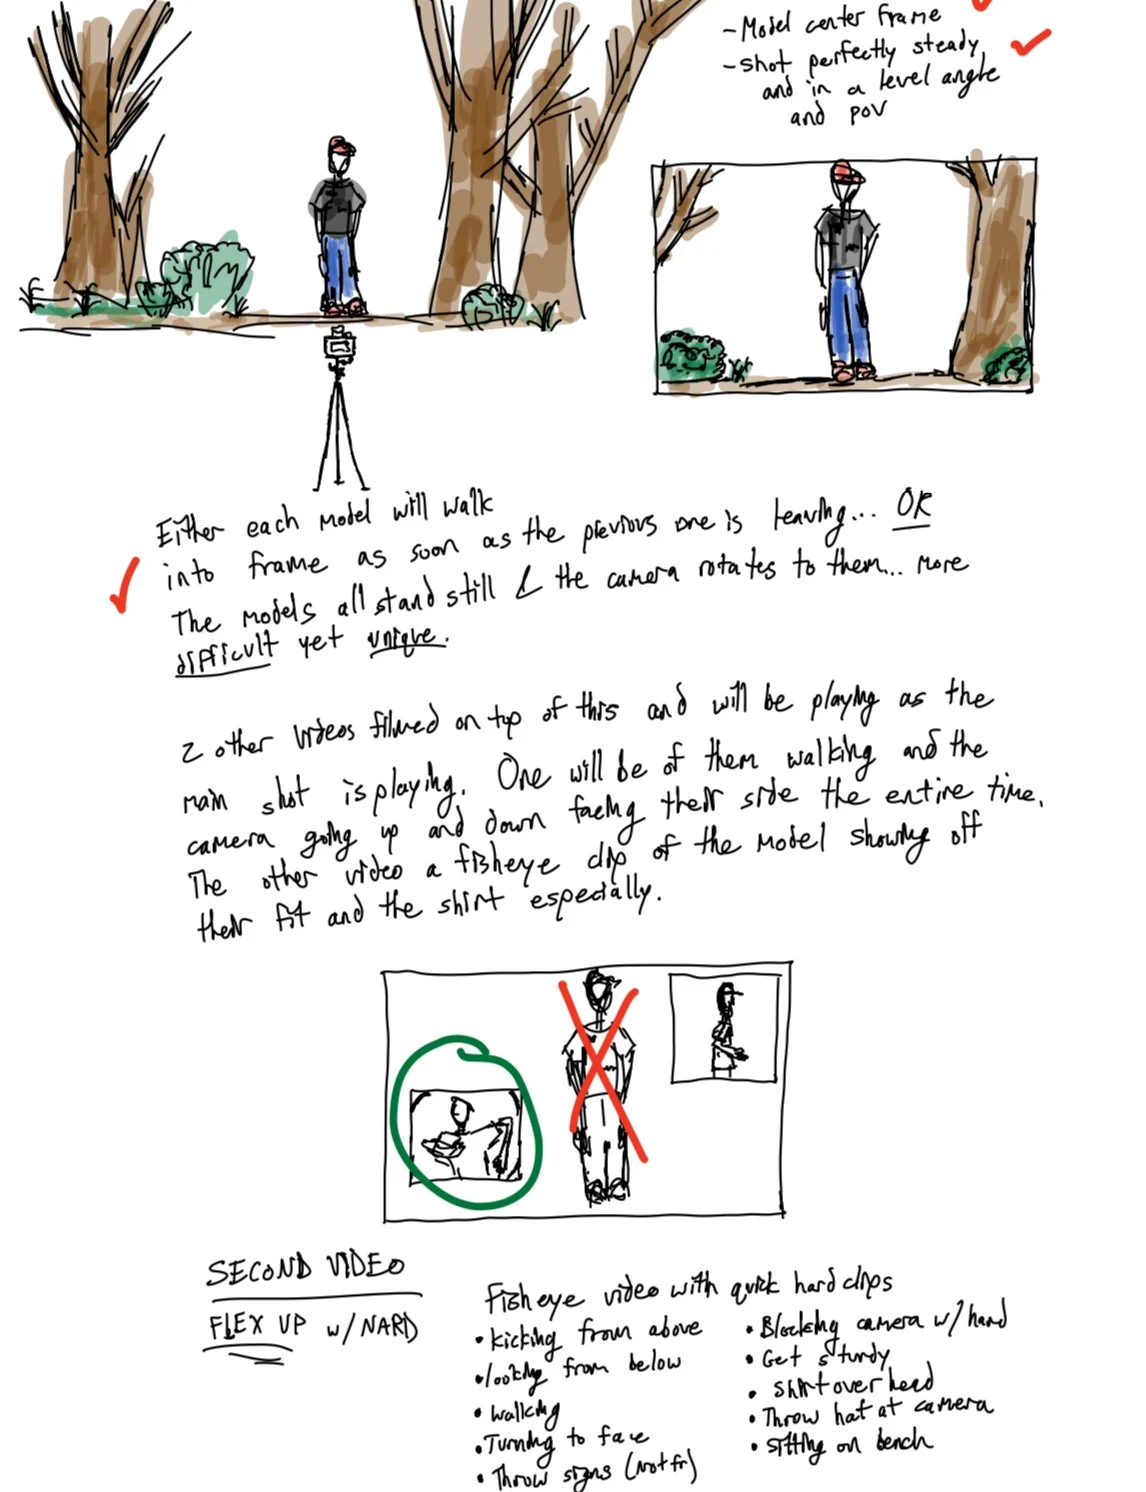 -Model center frame
-shot perfectly steady
and in a level angle
and pov
Either each model will walk
into frame as soon as the previous one is leaving... OR
The models all stand still & the camera rotates to them... more
difficult yet unique.
2 other videos filmed on top of this and will be playing as the
main shot is playing. One will be of them walking and the
camera going up and down facing their side the entire time.
The other video a fisheye clip of the model showing off
their fit and the shirt especially.
SECOND VIDEO
FLEX UP w/NARD
Fisheye video with quick hard clips
• kicking from above
• looking from below
• walking
• Turning to face
• Throw signs (not fr)
• Blocking camera w/hand
• Get sturdy
• shirt over head
• Throw hat at camera
• sitting on bench